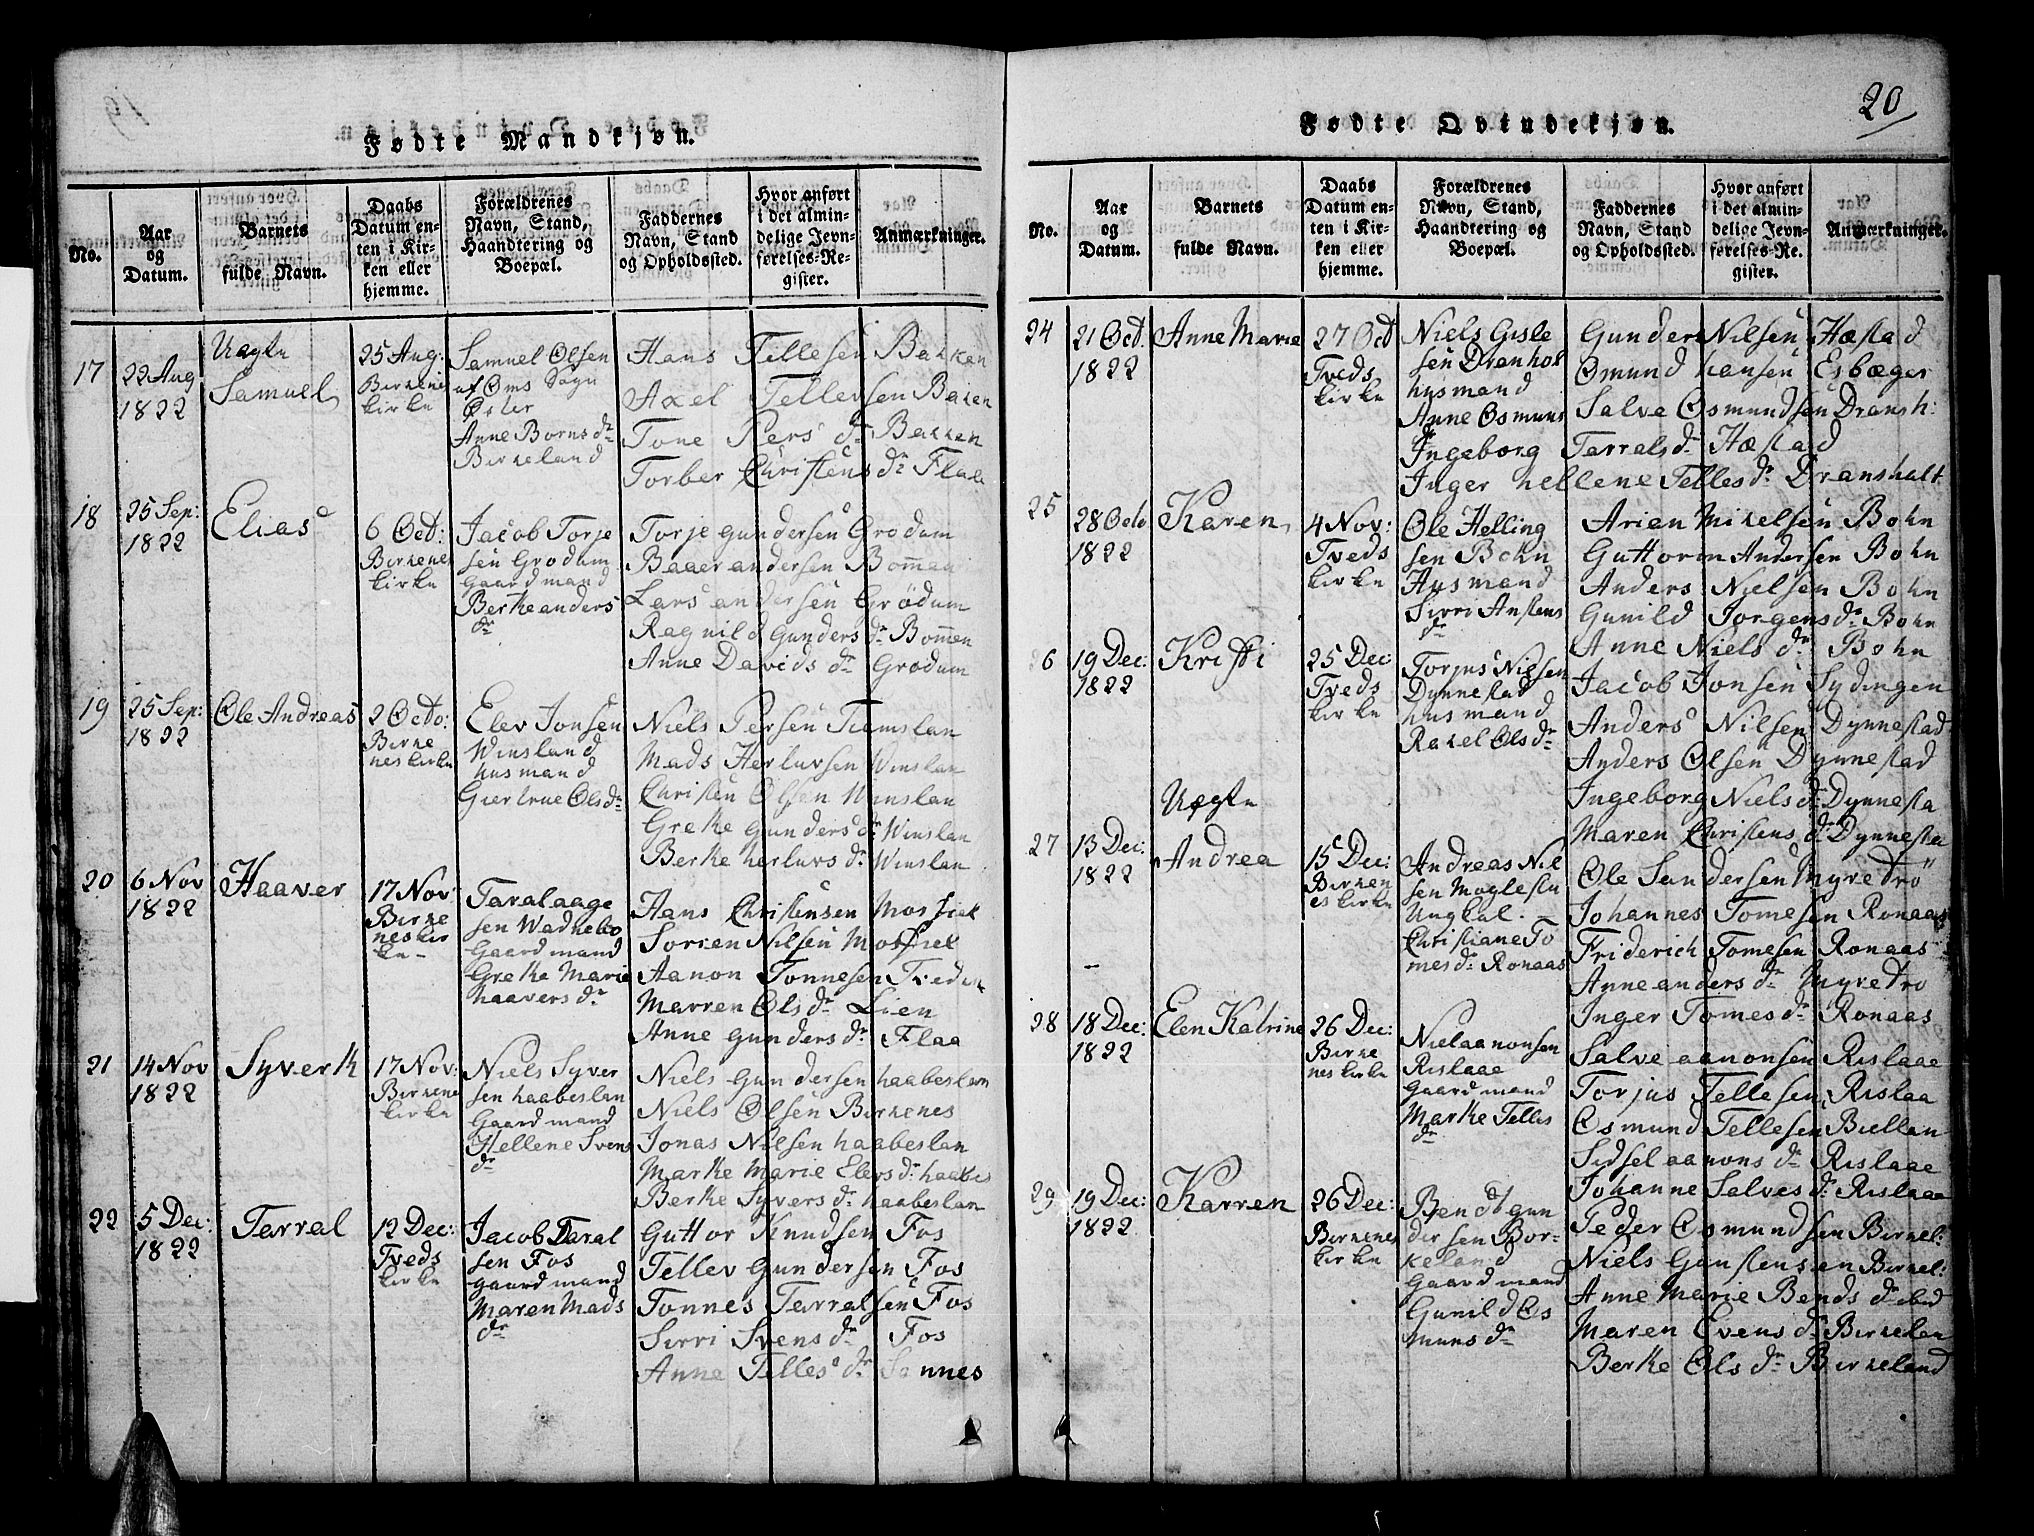 20
Fødte Mandkjøn.
No.
Aar
og
Datum.
Barnets
fulde Navn.
Daabs
Datum en-
ten i Kir-
ken eller
hjemme.
Forældrenes
Navn, Stand,
Haandtering og
Boepæl.
Faddernes
Navn, Stand
og Opholdssted.
Hvor anført
i det almin-
delige Jevn-
førelses-Re-
gister.
Anmærkninger.
17
22 Aug
1822
Uægte
Samuel
25 Aug:
Birkenes
kirke
Samuel Olsen
af Oms Sogn
Anne Borns dr
Birkeland
Hans Tellesen Bakken
Axel Tellefsen Baken
Tone Pers dr Bakken
Torber Christens dr Flaa
18
25 Sep:
1822
Elias
6 Oct:
Birkenes
kirke
Jacob Torje
sen Grodum
Gaardmand
Berke anders
dr
Torje Gundersen Grodum
Baaer andersen Bommen
Lars andersen Grødum
Ragnild Gunders dr Bommen
Anne Davids dr Grodum
19
25 Sep:
1822
Ole Andreas
2 Octo:
Birke
nes kirke
Elev Jonsen
Winsland
husmand
Giertrue Ols dr
Niels Persen Tiemslan
Mads Herluvsen Winslan
Christen Olsen Winslan
Grethe Gunders dr Winslan
Berke herluvs dr Winslan
20
6 Nov
1822
Haaver
17 Nov:
Birke
nes kir
ke
Taral aage
sen Wadnebo
Gaardmand
Grethe Marie
haavers dr
Hans Christensen Mosfiel
Sorren Nilsen Mosfiel
Aanon Tonnesen
Marren Ols dr Lien
Anne gunders dr Flaa
21
14 Nov
1822
Syvert
17 Nov:
Birkenes
kirke
Niels Syver
sen haabeslan
Gaardmand
Hellene Svens
dr
Niels Gundersen haabeslan
Niels Olsen Birkenes
Jonas Nilsen haabeslan
Marthe Marie Elevs dr haabes
Berthe Syvers dr haabeslan
22
5 Dec:
1822
Terral
12 Dec:
Tveds
kirke
Jacob Taral
sen Fos
gaardmand
Maren Mads
dr
Guttor Knudsen Fos
Tellev Gundersen Fos
Tonnes Tarralsen Fos
Sirri Svens dr Fos
Anne Telles dr Sannes
Fødte Qvindekjøn.
No.
Aar
og
Datum.
Barnets
fulde Navn.
Daabs
Datum en-
ten i Kir-
ken eller
hjemme.
Forældrenes
Navn, Stand,
Haandtering og
Boepæl.
Faddernes
Navn, Stand
og Opholdssted.
Hvor anført
i det almin-
delige Jevn-
førelses-Re-
gister.
Anmærkninger.
24
21 Oct
1822
Anne Marie
27 Oct
Tveds
kirke
Niels Gisle
sen Dranhol
husmand
Anne Osmuns
dr
Gunder Nilsen Hæstad
Osmund hansen Esbæger
Salve Osmundsen Dransh:
Ingeborg Tarrals dr Hæstad
Inger hellene Telles dr Dranshalt
25
28 Octo
1822
Karen
4 Nov:
Tveds
kirke
Ole Helling
sen Bohn
Husmand
Sirri Anstens
dr
Arien Mikelsen Bohn
Guttorm Andersen Bohn
Anders Nielsen Bohn
Gunild Jorgens dr Bohn
Anne Niels dr Bohn
26
19 Dec:
1822
Kristi
25 Dec
Tveds
kirke
Torjus Nilsen
Dynnestad
husmand
Rakel Ols dr
Jacob Jonsen Sydingen
Anders Nilsen Dynnestad
Anders Olsen Dynnestad
Ingeborg Niels dr Dynnesta
Maren Christens dr Dynnesta
27
13 Dec:
1822
Uægte
Andrea
15 Dec:
Birken
es kirke
Andreas Nil
sen Moglestu
Ungkal.
Christiane To
mes dr Ronaas
Ole Sandersen Myre Tro
Johannes Tomesen Ronaas
Friderich Tomesen Ronaas
Anne anders dr Myre Tro
Inger Tomes dr Ronaas
28
18 Dec:
1822
Elen Katrine
26 Dec:
Birke
nes kirke
Niel aanonsen
Rislaae
gaardmand
Marthe Telles
dr
Salve aanonsen Rislaae
Torjus Tellesen Rislaa
Osmund Tellesen Biellan
Sidsel aanons dr Rislaae
Johanne Salves dr Rislaae
29
19 Dec:
1822
Karren
26 Dec:
Birkenes
kirke
Bendt gun
dersen Bor-
keland
Gaardmand
Gunild Os
muns dr
Peder Osmundsen Birkel:
Niels Gunstensen Birkel:
Anne Marie Bends dr ibid
Maren Evens dr Birkelan
Berthe Ols dr Birkeland